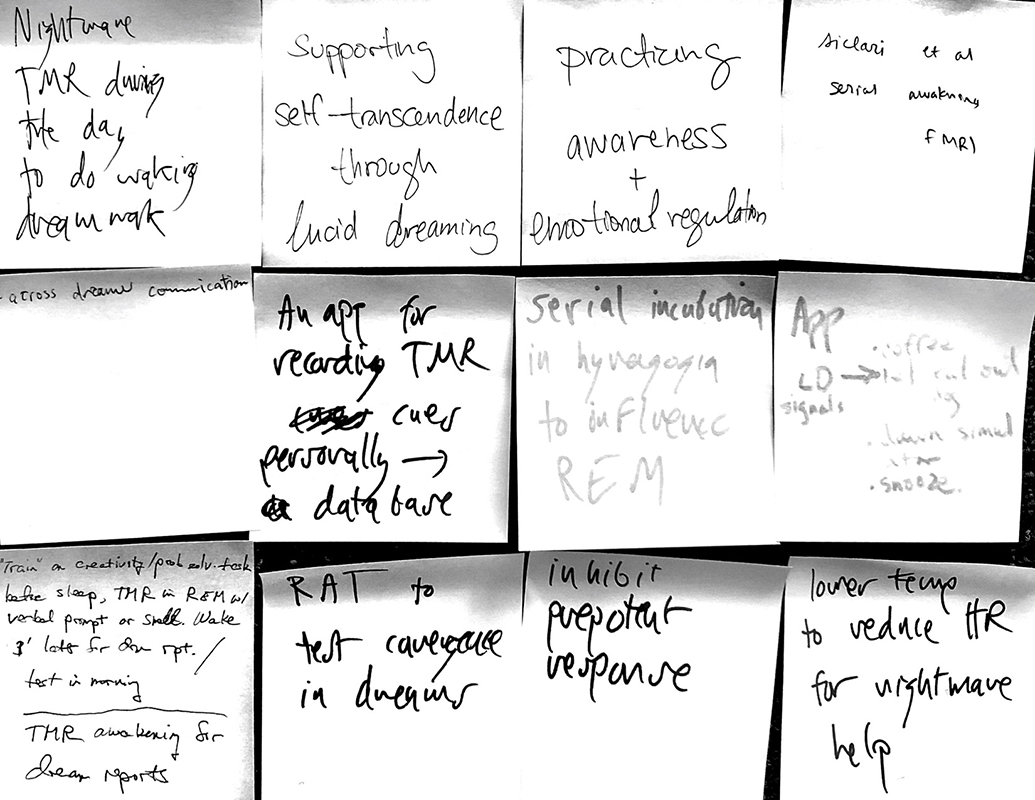 Nightmare
TMR during
the day
to do waking
dreamwork
Supporting
self-transcendence
through
lucid dreaming
practicing
awareness
+
emotional regulation
siclari et al
serial awakening
fMRI
- across dreamer
An app for
recording TMR
cues
personally →
database
serial incubation
in hynagogia
to influence
REM
App
LD →
signals
coffee
out
.snooze.
"Train" on creativity/prob solv. task
before sleep, TMR in REM w/
verbal prompt or smell. Wake
3' later for drm rpt. /
test in morning
TMR awakening for
dream reports
RAT to
test convergence
in dreams
inhibit
prepotent
response
lower temp
to reduce HR
for nightmare
help